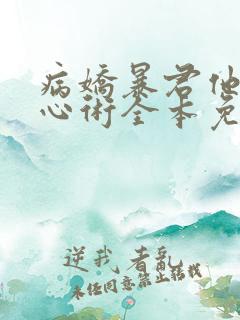 病娇暴君他
心术全本免
逆我者乱
未经同意禁止转载